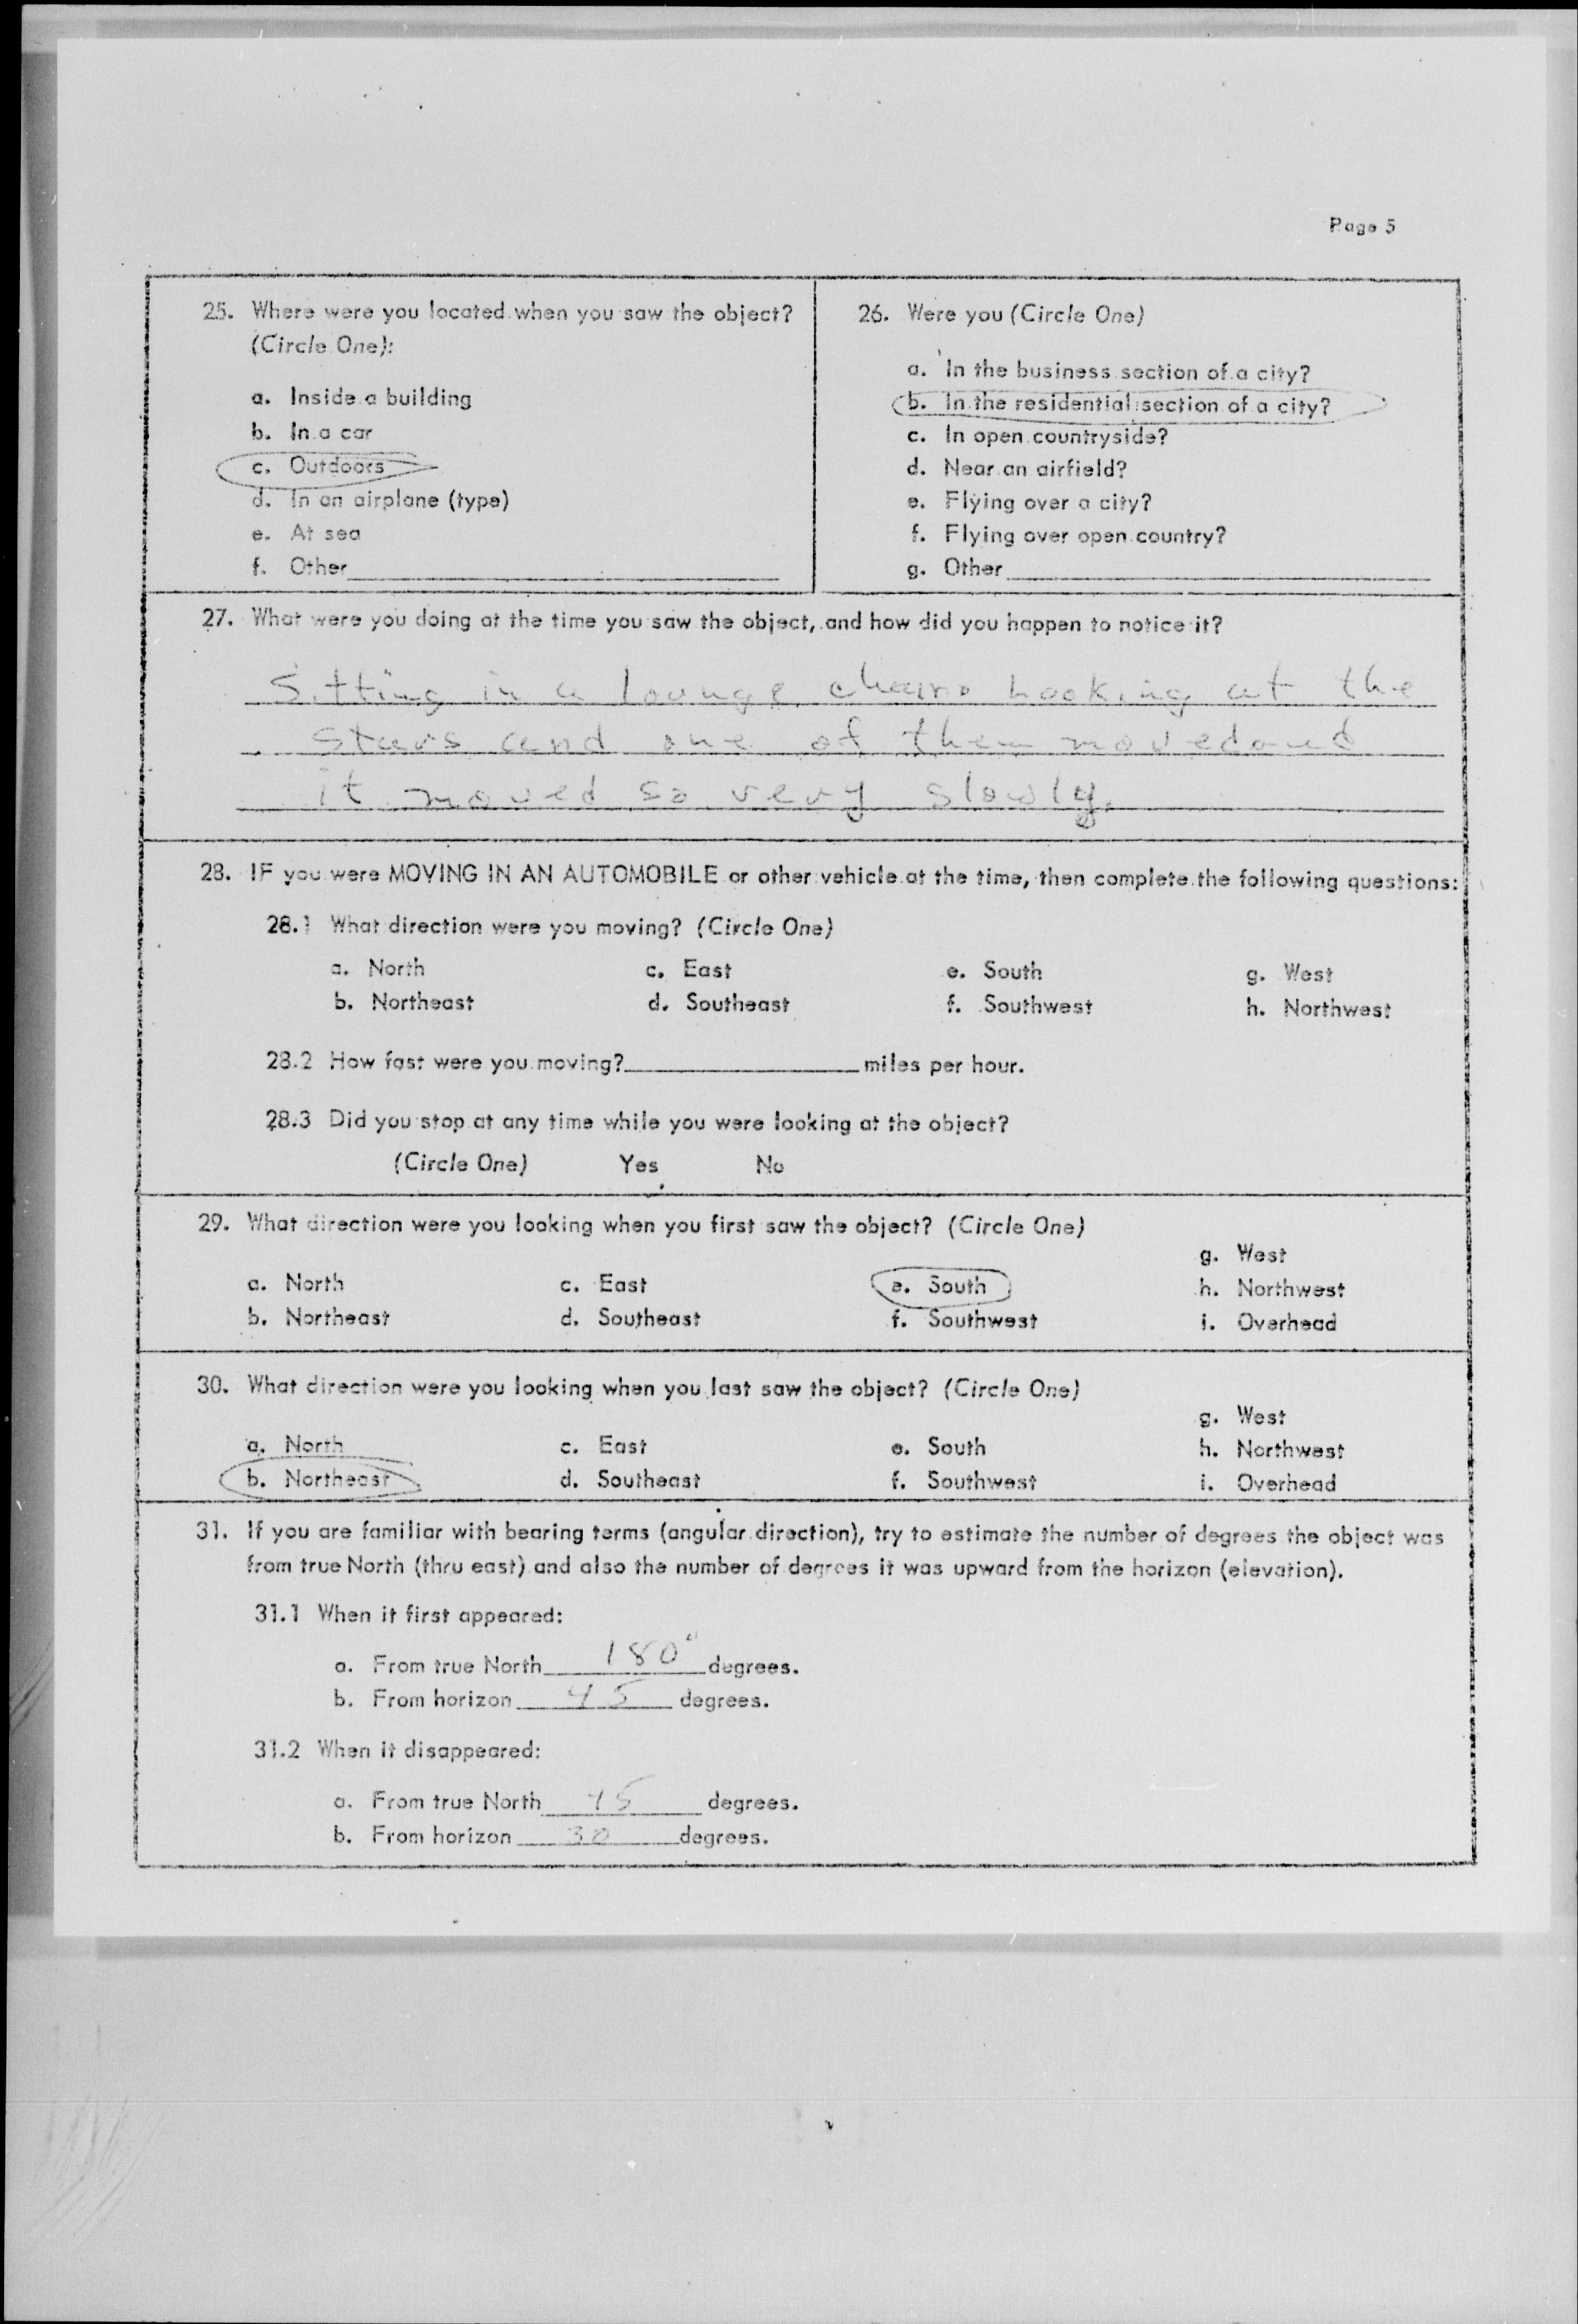 Page 5
25. Where were you located when you saw the object?
(Circle One):
a. Inside a building
b. In a car
c. Outdoors
d. In an airplane (type)
e. At sea
f. Other
26. Were you (Circle One)
a. In the business section of a city?
b. In the residential section of a city?
c. In open countryside?
d. Near an airfield?
e. Flying over a city?
f. Flying over open country?
g. Other
27. What were you doing at the time you saw the object, and how did you happen to notice it?
Sitting in a lounge chair. Looking at the
stars and one of them moved and
it moved so very slowly.
28. IF you were MOVING IN AN AUTOMOBILE or other vehicle at the time, then complete the following questions:
28.1 What direction were you moving? (Circle One)
a. North c. East e. South g. West
b. Northeast d. Southeast f. Southwest h. Northwest
28.2 How fast were you moving? miles per hour.
28.3 Did you stop at any time while you were looking at the object?
(Circle One) Yes No
29. What direction were you looking when you first saw the object? (Circle One)
g. West
a. North c. East e. South h. Northwest
b. Northeast d. Southeast f. Southwest i. Overhead
30. What direction were you looking when you last saw the object? (Circle One)
g. West
a. North c. East e. South h. Northwest
b. Northeast d. Southeast f. Southwest i. Overhead
31. If you are familiar with bearing terms (angular direction), try to estimate the number of degrees the object was
from true North (thru east) and also the number of degrees it was upward from the horizon (elevation).
31.1 When it first appeared:
a. From true North 180° degrees.
b. From horizon 45 degrees.
31.2 When it disappeared:
a. From true North degrees.
b. From horizon 30 degrees.